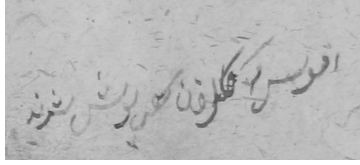 افسوس که گلرخان کفن پوش شدند